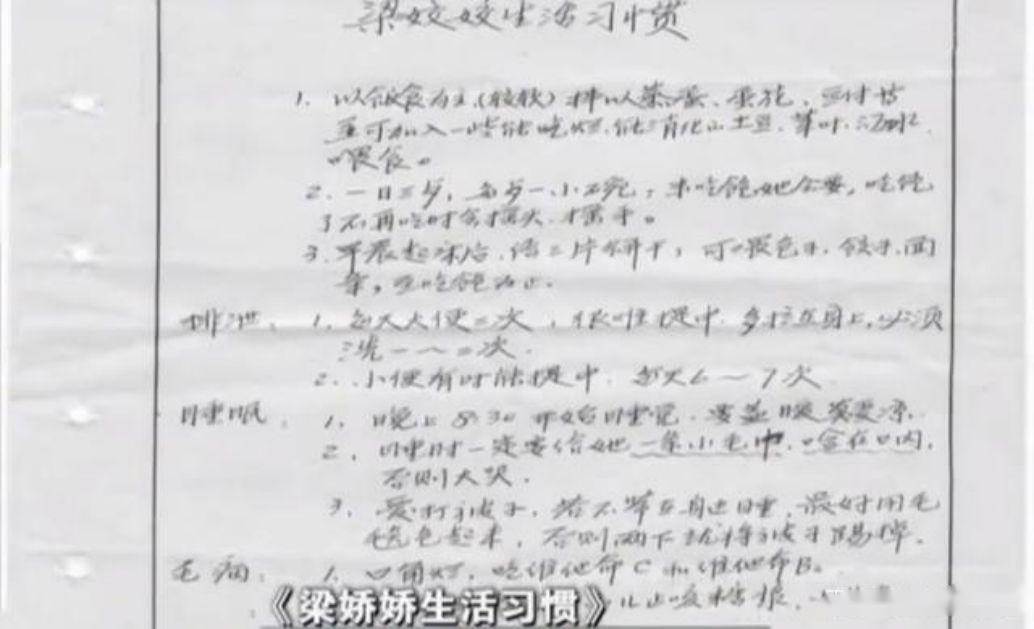 梁姣姣生活习惯
1. 以饭食为主(较软)拌以蒸蛋、蛋花、豆付等
至可加入一些能吃烂.能消化的土豆.菜叶.汤水.
喂食。
2. 一日三歺, 每歺一小碗, 未吃饱她会要, 吃饱
了不再吃时会摇头.摆手。
3. 早晨起床后.给二片饼干, 可喂包子、饺子、面
条, 至吃饱为止.
排泄: 1. 每天大便二次, 很难提中.多拉在身上,必须
洗一~二次.
2. 小便有时能提中. 每天6~7次
睡眠. 1. 晚上8:30开始睡觉.要盖暖莫受凉.
2. 睡时一定要给她一条小毛巾.含在口内,
否则大哭.
3. 爱打被子, 若不带在身边睡.最好用毛
毯包起来, 否则两下就将被子踢掉.
毛病: 1. 口角烂, 吃维他命C和维他命B。
《梁娇娇生活习惯》